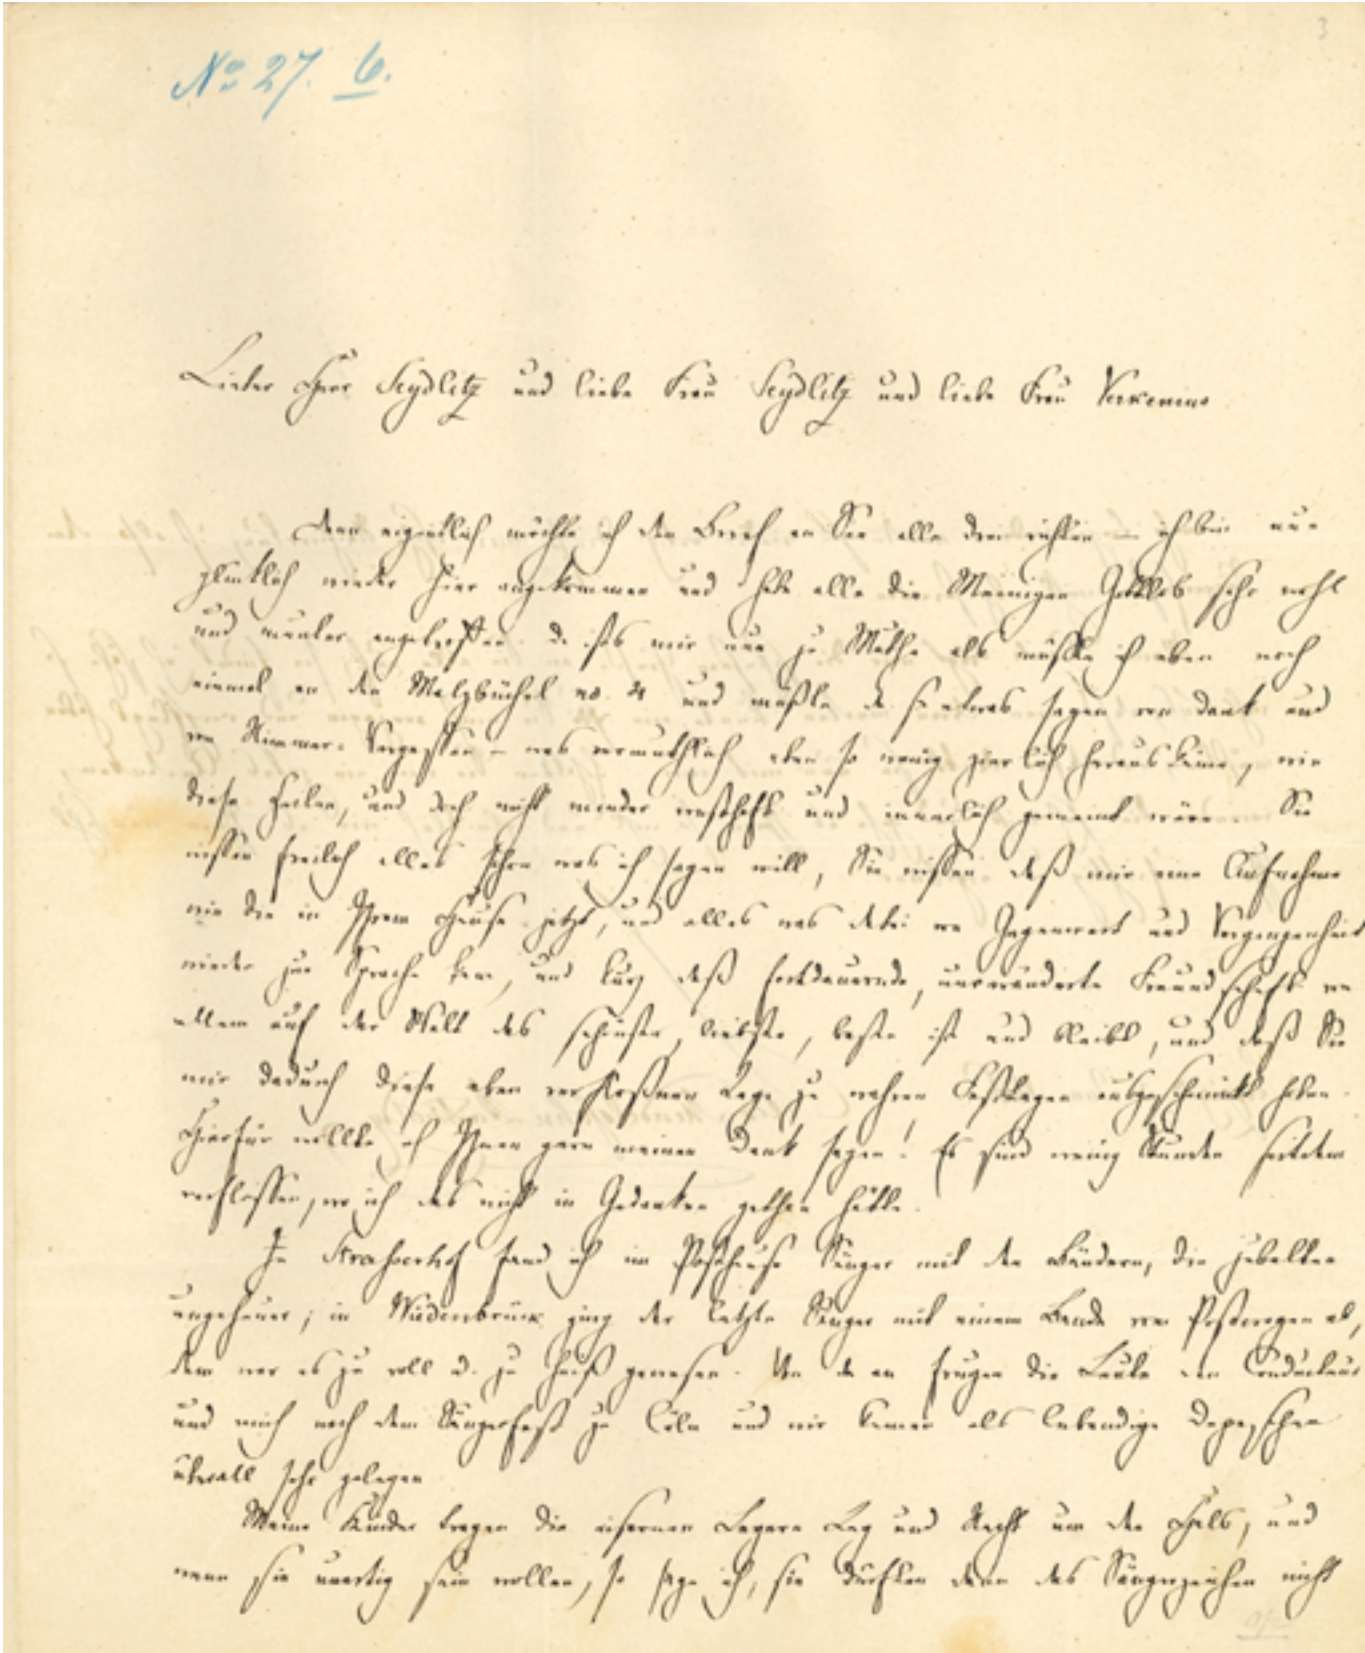 3
No 27. 6.
Lieber Herr Seydlitz und liebe Frau Seydlitz und liebe Frau Verkenius
denn eigentlich möchte ich den Brief an Sie alle drei richten – ich bin nun
glücklich wieder hier angekommen und habe alle die Meinigen Gottlob sehr wohl
und munter angetroffen. da ists mir nun zu Muthe als müßte ich eben noch
einmal an den Malzbüchel no. 4 und müßte da so etwas sagen von Dank und
von Nimmer-Vergessen – was vermuthlich eben so wenig zierlich herauskäme, wie
diese Zeilen, und doch nicht minder wahrhaft und innerlich gemeint wäre. Sie
wissen freilich alles schon was ich sagen will, Sie wissen daß mir eine Aufnahme
wie die in Ihrem Hause jetzt, und alles was dabei von Gegenwart und Vergangenheit
wieder zur Sprache kam, und kurz daß fortdauernde, unveränderte Freundschaft von
allem auf der Welt das schönste, liebste, beste ist und bleibt, und daß Sie
mir dadurch diese eben verfloßnen Tage zu wahren Festtagen ausgeschmückt haben.
Hierfür wollte ich Ihnen gern meinen Dank sagen. Es sind wenig Stunden seitdem
verflossen, wo ich das nicht in Gedanken gethan hätte.
In fand ich im Posthause Sänger mit den Bändern, die jubelten
ungeheuer; in Wiedenbrück ging der letzte Sänger mit einem Bande vom Postwagen ab,
dem war es zu voll u. zu heiß gewesen. Von da an frugen die Leute den Conducteur
und mich nach dem Sängerfest zu Cöln und wir kamen als lebendige Depeschen
überall sehr gelegen
Meine Kinder tragen die eisernen Tag und Nacht um den Hals, und
wenn sie unartig sein wollen, so sage ich, sie dürften dann das Sängerzeichen nicht